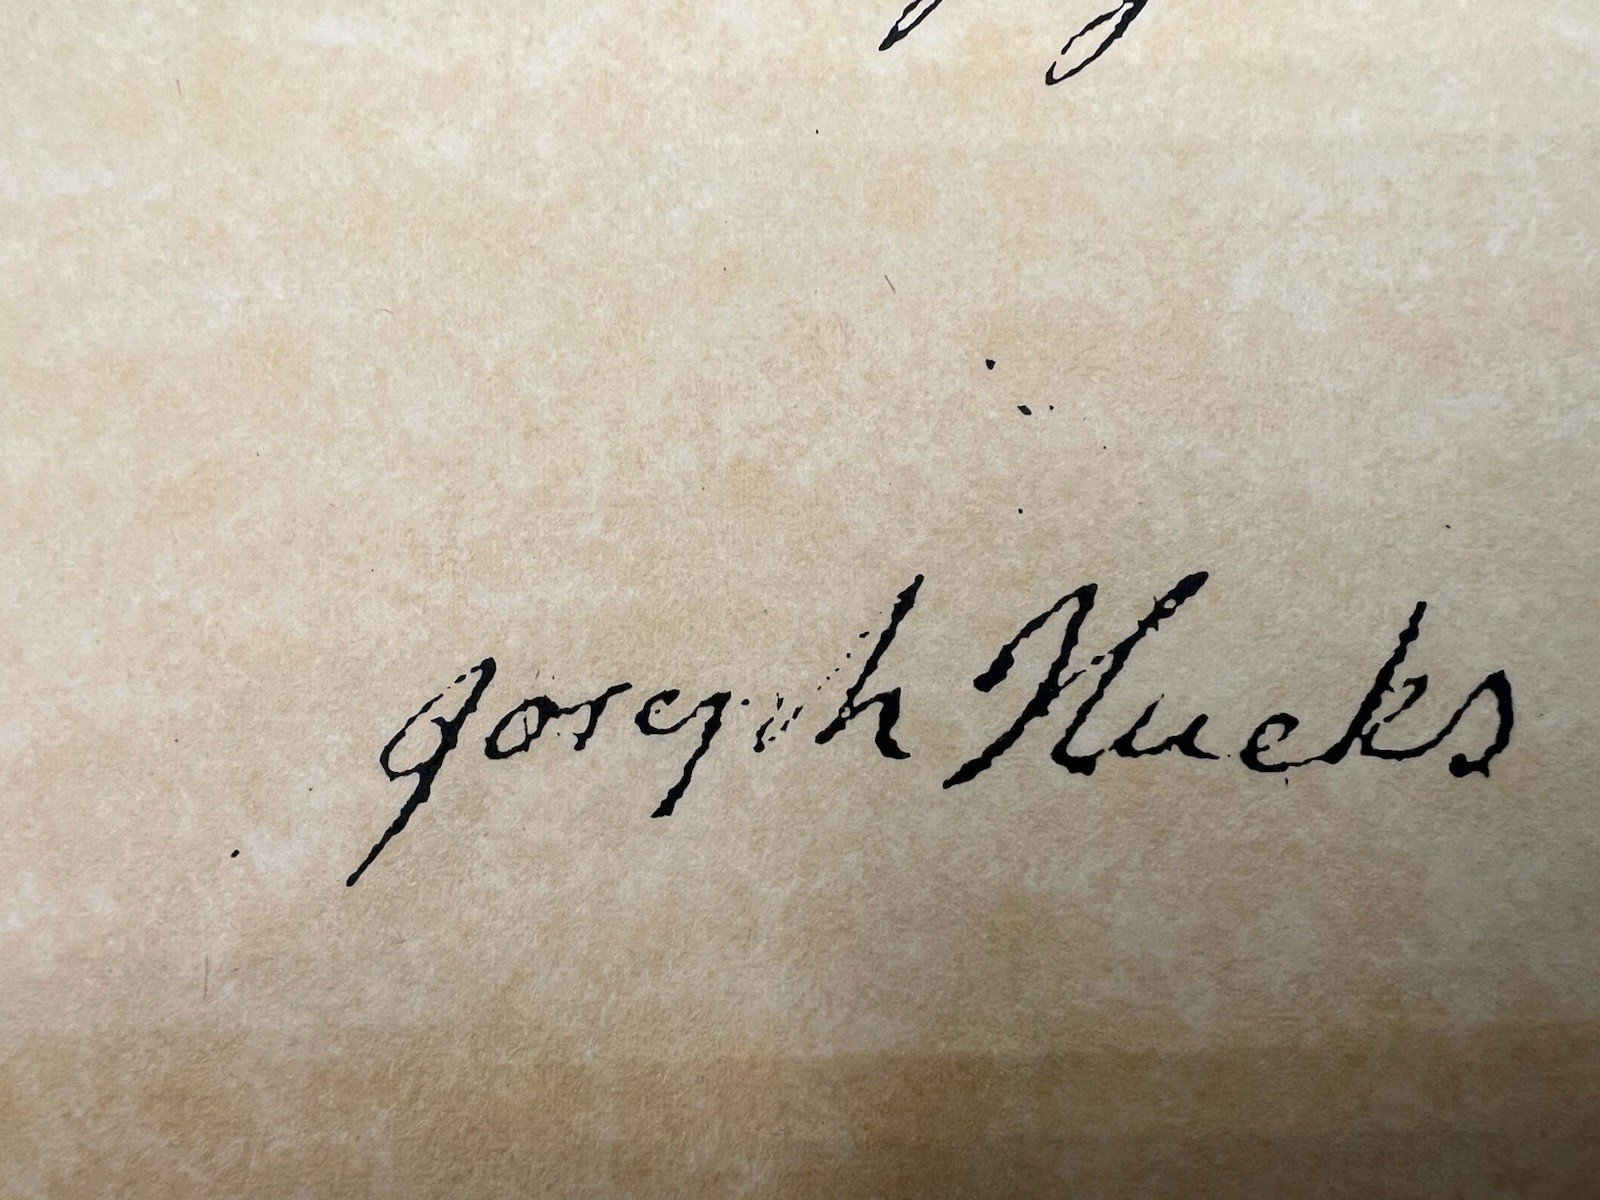 Joseph Hucks